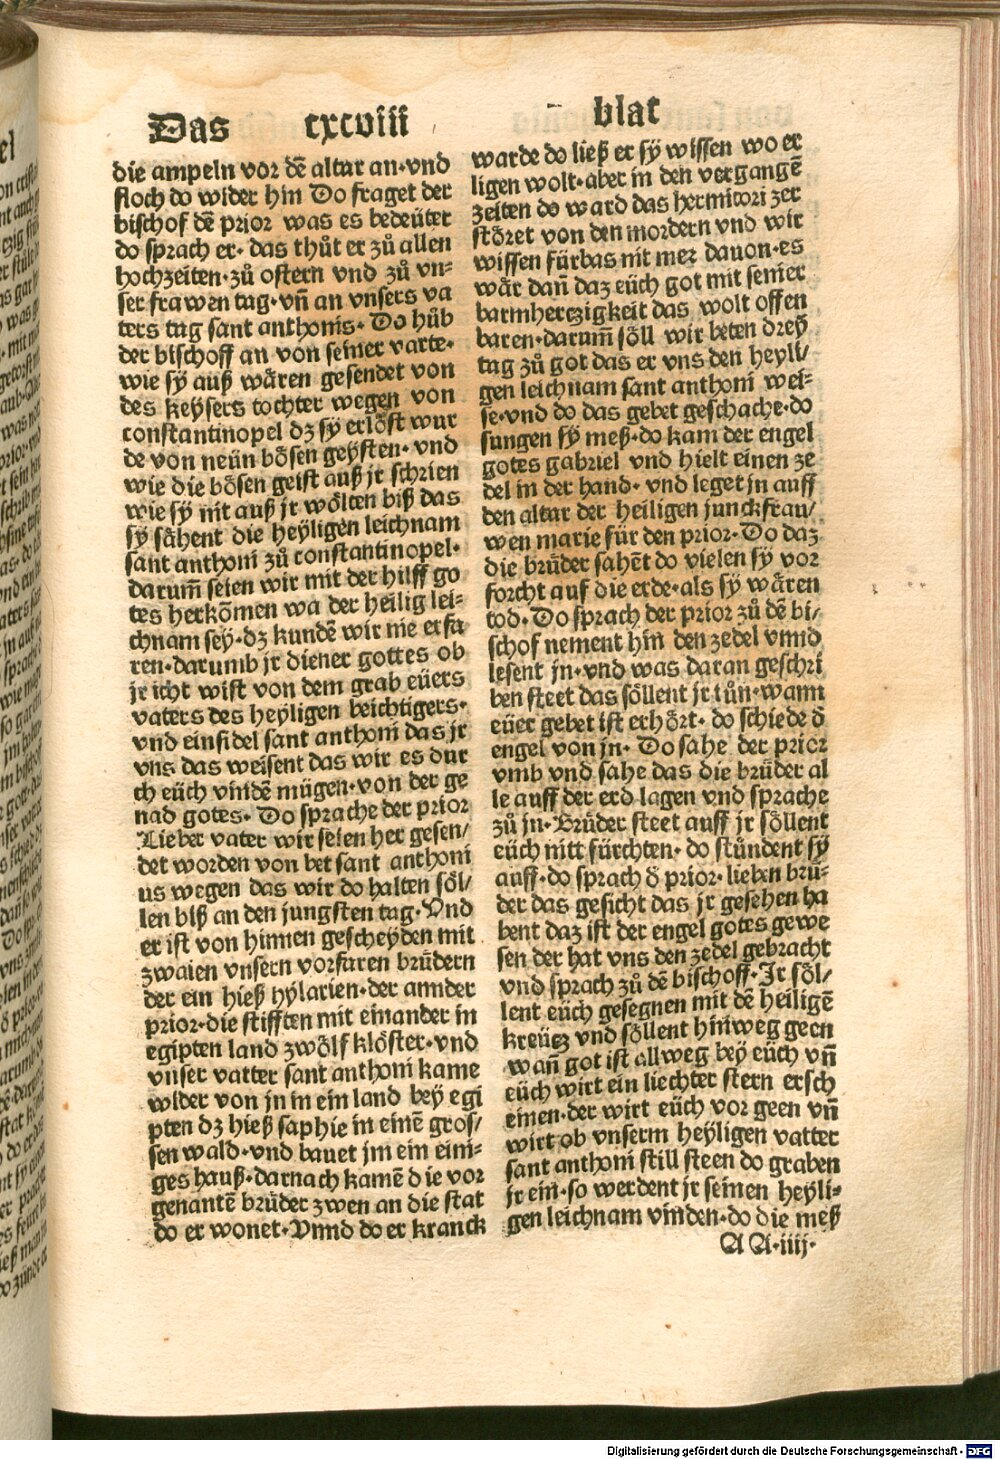 Das cxcviii blat
die ampeln vor dē altar an·vnd
floch do wider hin Do fraget der
bischof dē prior was es bedeüter
do sprach er· das thůt er zů allen
hochzeiten·zů ostern vnd zů vn⸗
ser frawen tag·vn̄ an vnsers va
ters tag sant anthonis· Do hůb
der bischoff an von seiner varte·
wie sÿ auß wären gesendet von
des keÿsers tochter wegen von
constantinopel dz sÿ erlöst wur
de von neün bösen geÿsten· vnd
wie die bösen geist auß jr schrien
wie sÿ nit auß jr wölten biß das
sÿ sähent die heÿligen leichnam
sant anthoni zů constantinopel·
darum̄ seien wir mit der hilff go
tes herkōmen wa der heilig lei⸗
chnam seÿ·dz kundē wir nie erfa
ren·darumb jr diener gottes ob
jr icht wist von dem grab eüers
vaters des heÿligen beichtigers·
vnd einsidel sant anthoni das jr
vns das weisent das wir es dur
ch eüch vindē mügen·von der ge
nad gotes· Do sprache der prior
Lieber vater wir seien her gesen/
det worden von bet sant anthoni
us wegen das wir do halten söl/
len biß an den jungsten tag·Vnd
er ist von hinnen gescheÿden mit
zwaien vnsern vorfaren brüdern
der ein hieß hÿlarien·der annder
prior·die stifften mit einander in
egipten land zwölf klöster·vnd
vnser vatter sant anthoni kame
wider von jn in ein land beÿ egi
pten dz hieß saphie in einē gros/
sen wald·vnd bauet jm ein eini⸗
ges hauß·darnach kamē die vor
genantē brüder zwen an die stat
do er wonet·Vnnd do er kranck
warde do ließ er sÿ wissen wo er
ligen wolt·aber in den vergangē
zeiten do ward das hermitori zer
störet von den mordern vnd wir
wissen fürbas nit mer dauon·es
wär dan̄ daz eüch got mit seiner
barmherczigkeit das wolt offen
baren·darum̄ söll wir beten dreÿ
tag zů got das er vns den heyli/
gen leichnam sant anthoni wei⸗
se·vnd do das gebet geschache·do
sungen sÿ meß·do kam der engel
gotes gabriel vnd hielt einen ze
del in der hand· vnd leget jn auff
den altar der heiligen junckfrau/
wen marie für den prior·Do daz
die brüder sahēt do vielen sÿ vor
forcht auf die erde·als sÿ wären
tod·Do sprach der prior zů dē bi/
schof nement hin den zedel vnnd
lesent jn·vnd was daran geschri
ben steet das söllent jr tůn·wann
eüer gebet ist erhört· do schiede d̄
engel von jn· Do sahe der prior
vmb vnd sahe das die brüder al
le auff der erd lagen vnd sprache
zů jn·Brüder steet auff jr söllent
eüch nitt fürchten· do stůndent sÿ
auff·do sprach d̄ prior· lieben brü⸗
der das gesicht das jr gesehen ha
bent daz ist der engel gotes gewe
sen der hat vns den zedel gebracht
vnd sprach zů dē bischoff·Jr söl/
lent eüch gesegnen mit dē heiligē
kreücz vnd söllent hinweg geen
wan̄ got ist allweg beÿ eüch vn̄
eüch wirt ein liechter stern ersch
einen·der wirt eüch vor geen vn̄
wirt ob vnserm heÿligen vatter
sant anthoni still steen do graben
jr ein·so werdent jr seinen heÿli⸗
gen leichnam vinden·do die meß
A A·iiij·
Digitalisierung gefördert durch die Deutsche Forschungsgemeinschaft - DFG